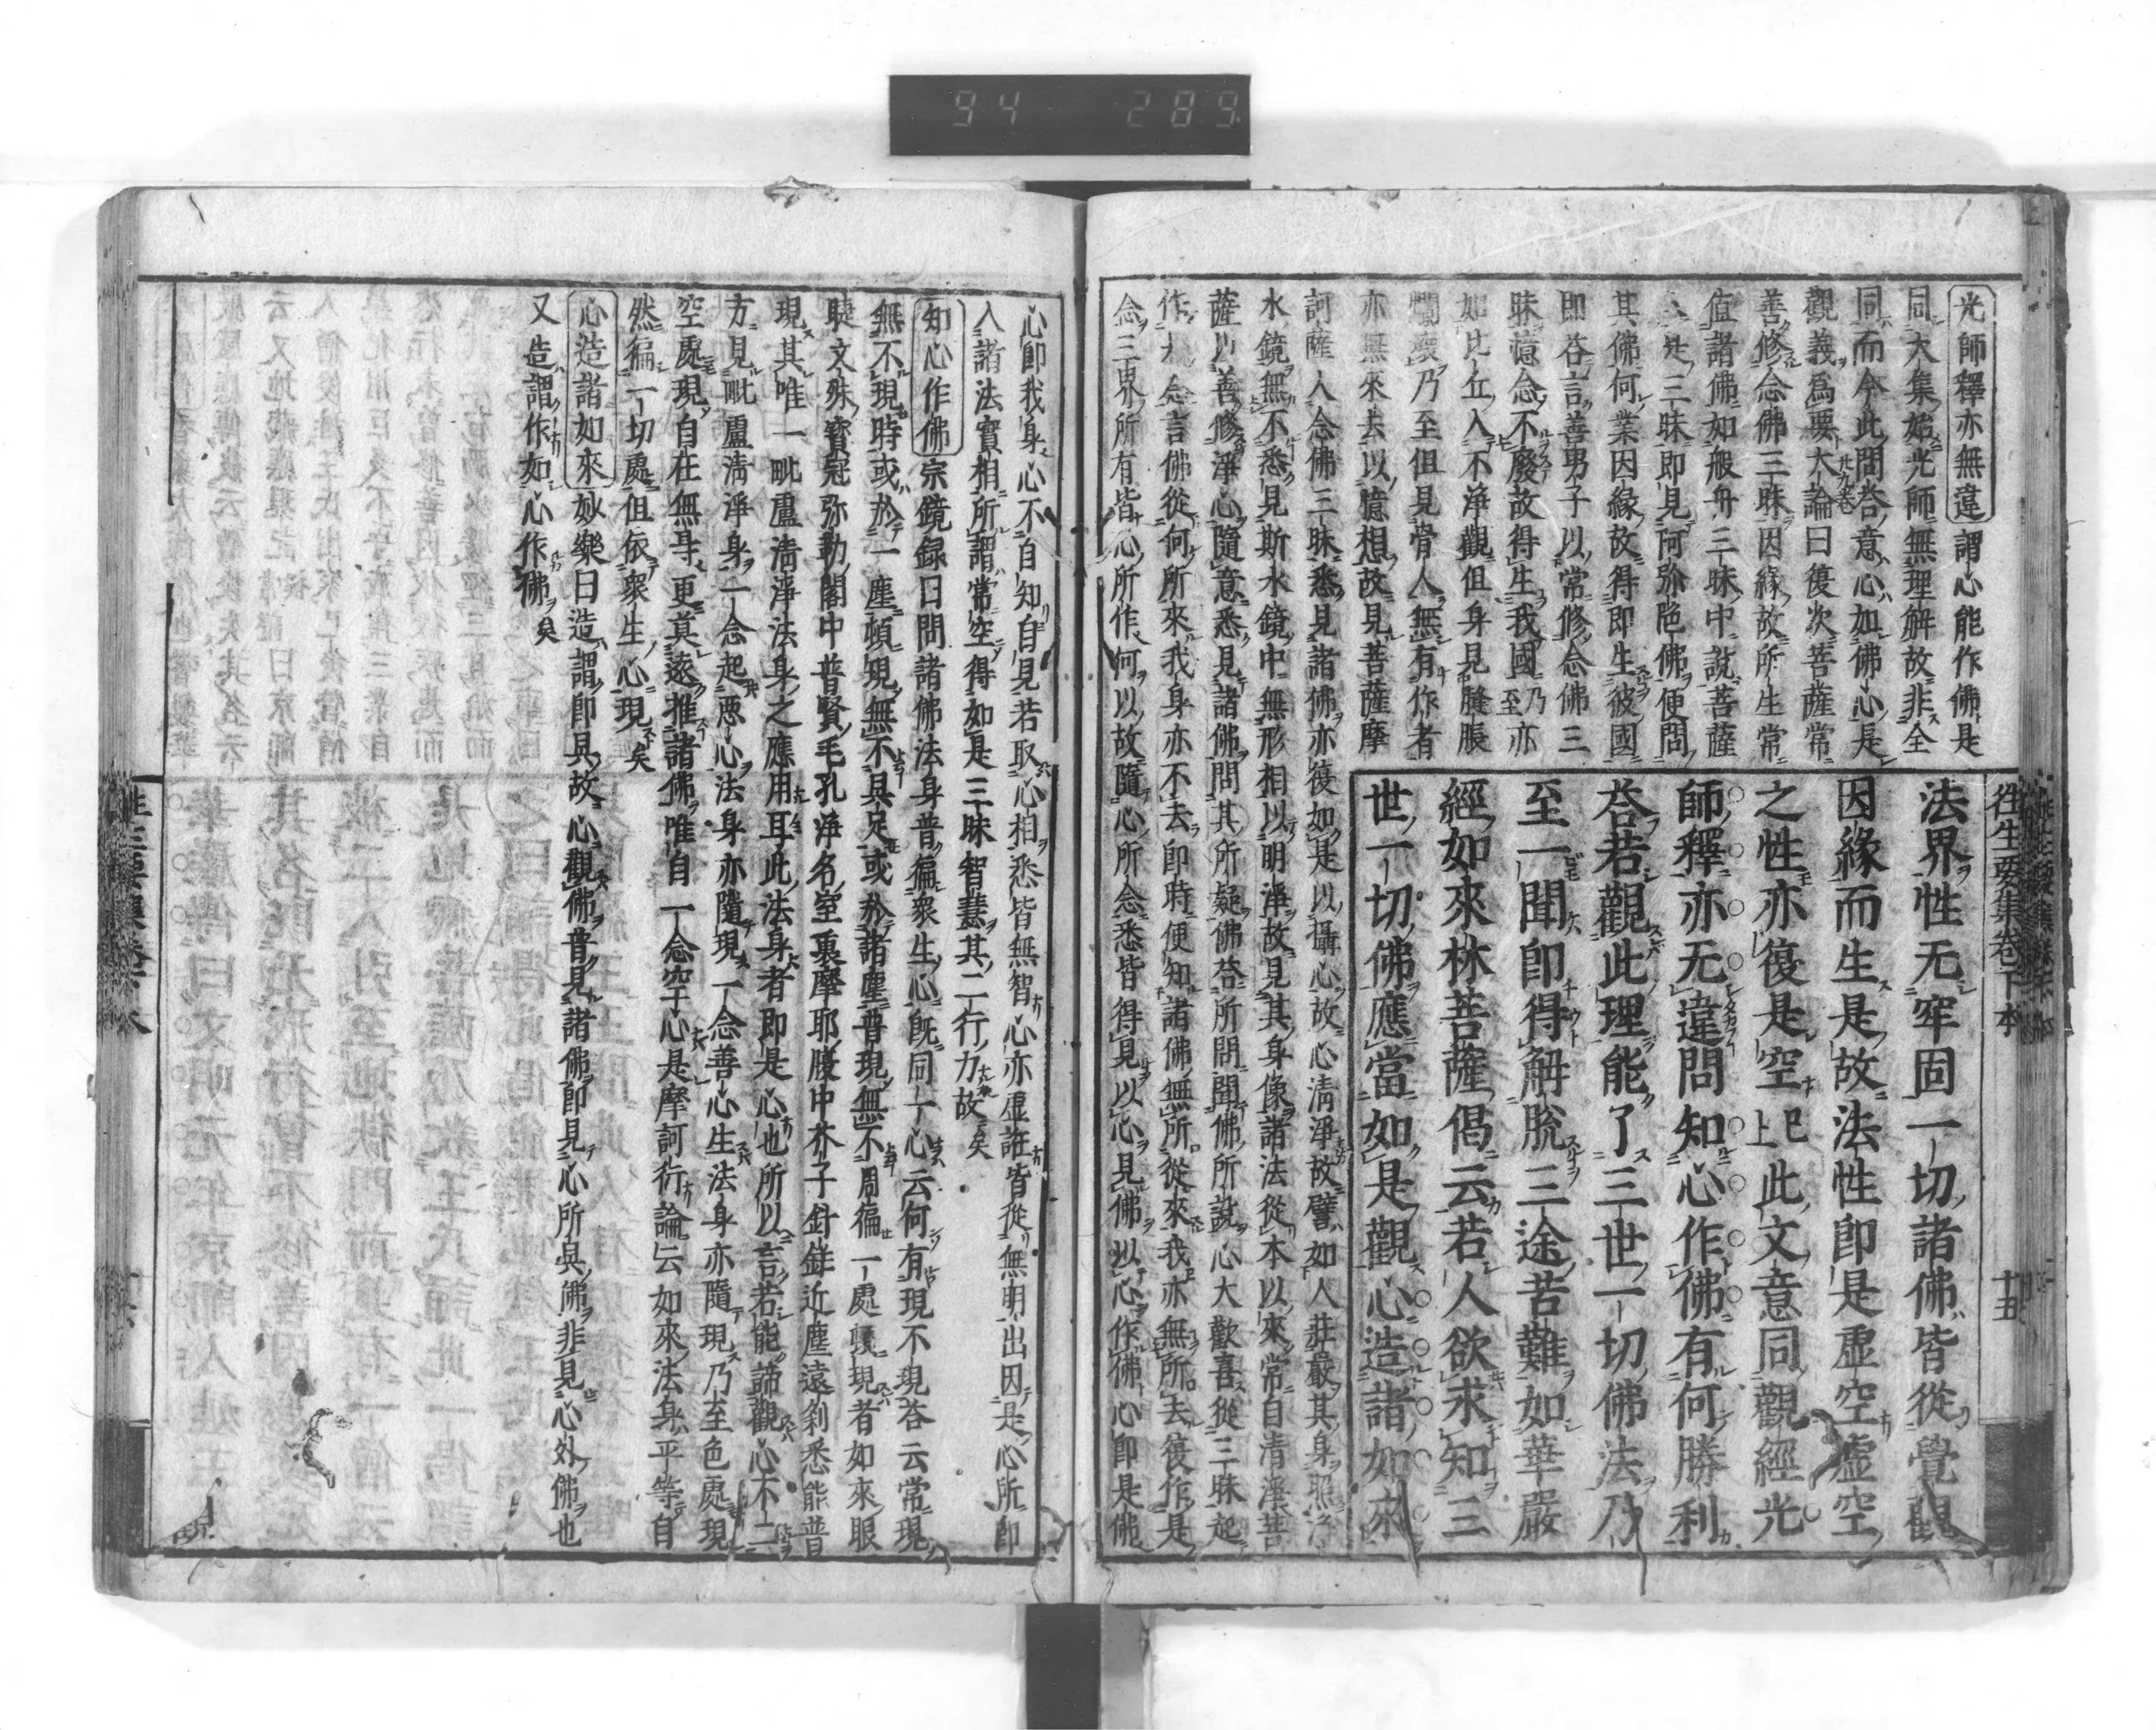 94 289
往生要集卷下本
十五
光師釋亦無違謂心能作佛是
同大集始光師無理解故非全
同而今此問荅意心如佛心是
觀義爲要大論曰復次菩薩常
善修念佛三昧因緣故所生常
値諸佛如般舟三昧中說菩薩
是三昧即見阿弥陁佛便問
其佛何業因緣故得即生彼國
即荅言善男子以常修念佛三
昧憶念不廢故得生我國乃至亦
如比丘入不淨觀但身見膖脹
爛壞乃至但見骨人無有作者
亦無來去以臆想故見菩薩摩
法界性无牢固一切諸佛皆從覺觀
因緣而生是故法性即是虛空虛空
之性亦復是空已上此文意同觀經光
師釋亦无違問知心作佛有何勝利
荅若觀此理能了三世一切佛法乃
至一聞即得解脫三途苦難如華嚴
經如來林菩薩偈云若人欲求知三
世一切佛應當如是觀心造諸如來
訶薩入念佛三昧悉見諸佛亦復如是以攝心故心淸淨故譬如人莊嚴其身照淨
水鏡無不悉見斯水鏡中無形相以明淨故見其身像諸法從本以來常自清淨菩
薩以善修淨心隨意悉見諸佛問其所疑佛荅所問聞佛所說心大歡喜從三昧起
作是念言佛從何所來我身亦不去即時便知諸佛無所從來我亦無所去復作是
念三界所有皆心所作何以故隨心所念悉皆得見以心見佛以心作佛心即是佛
心即我身心不自知自見若取心相悉皆無智心亦虛誑皆從無明出因是心所即
入諸法實相所謂常空得如是三昧智慧其二行力故矣
知心作佛宗鏡録曰問諸佛法身普徧衆生心旣同一心云何有現不現荅云常現
無不現時或於一塵頓現無不具足或於諸塵普現無不周徧一處頓現者如來眼
睫文殊寶冠弥勒閣中普賢毛孔淨名室裏摩耶腹中芥子針鋒近塵遠刹悉能普
現其唯一毗盧淸淨法身之應用耳此法身者即是心也所以言若能諦觀心不二
方見毗盧淸淨身一念起悪心法身亦隨現一念善心生法身亦隨現乃至色處現
空處現自在無㝵更莫遠推諸佛唯自一念空心是摩訶衍論云如來法身平等自
然徧一切處但依衆生心現矣
心造諸如來妙樂曰造謂即具故心觀佛昔見諸佛即見心所具佛非見心外佛也
又造謂作如心作佛矣